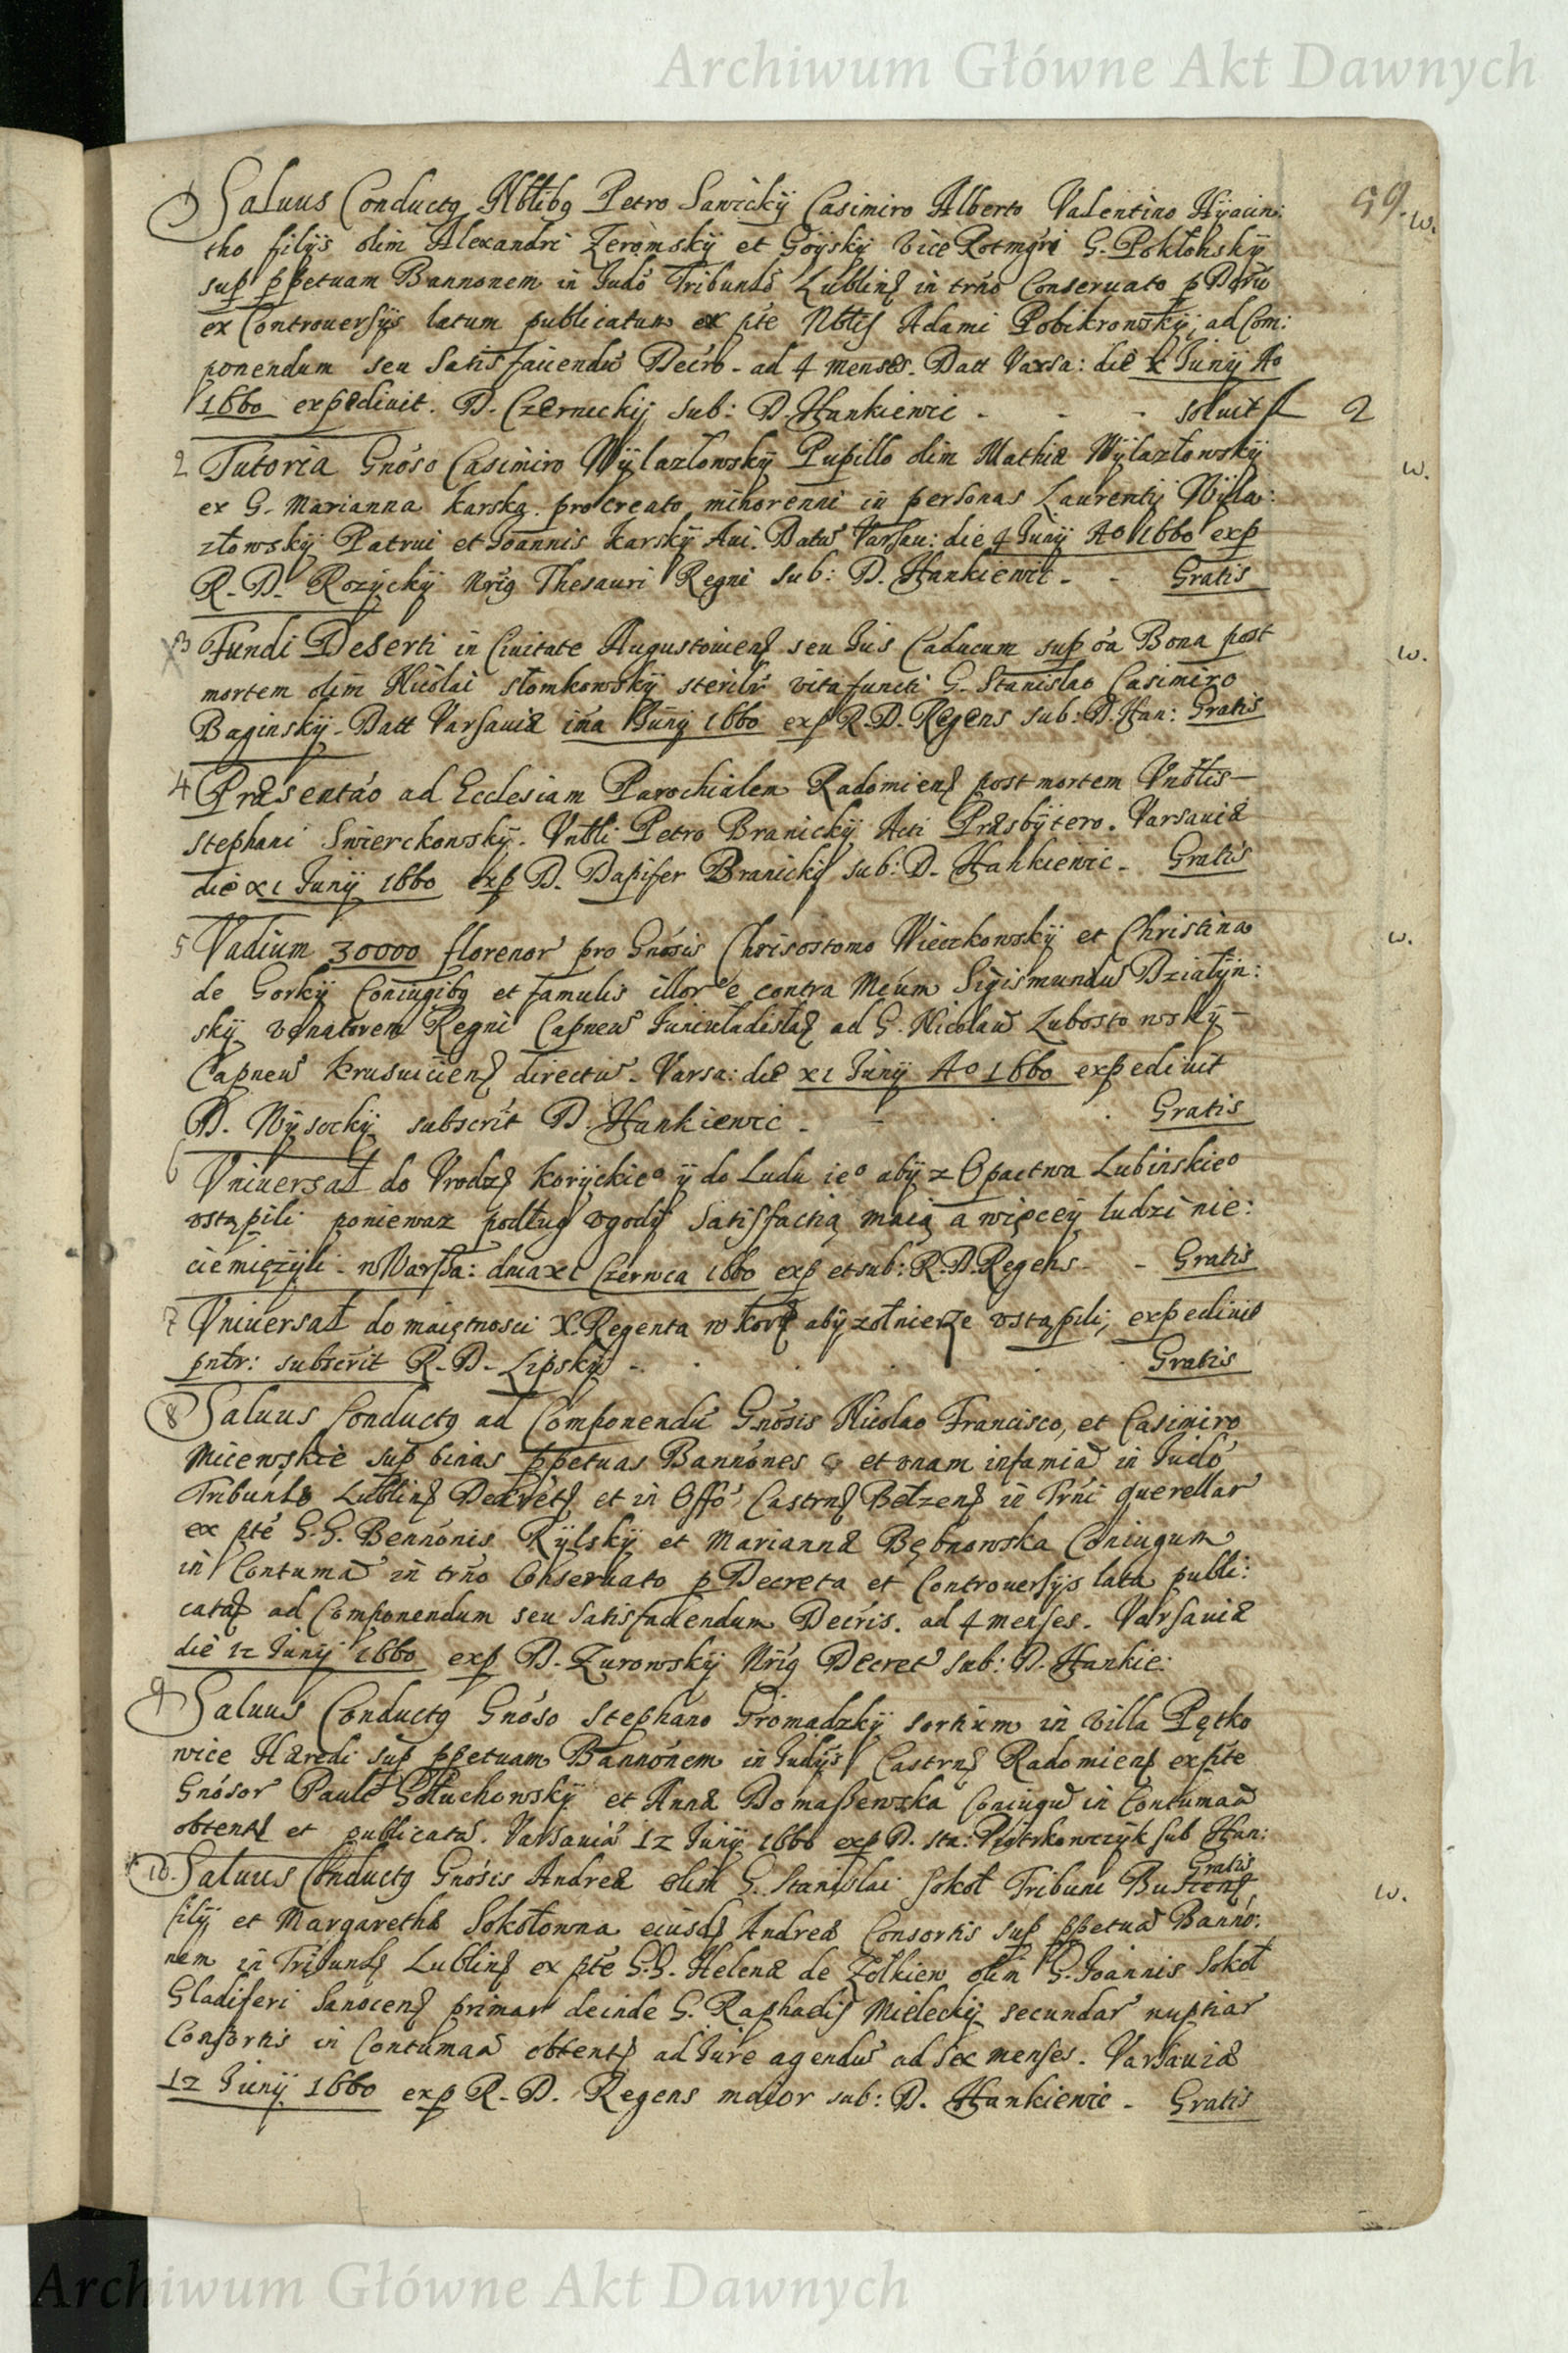 Archiwum Główne Akt Dawnych
59.
1 Saluus Conductg Nbłibg Petro Sawicky Casimiro Alberto Valentino Hÿacin:
tho filijs olim Alexandri Zeromskÿ et Goÿskÿ Vice Rotmgri G.
sup ppetuam Bannonem in Judõ Tribunlõ Lublinę in trño Conseruato p
ex Controuersÿs latum publicatum ex pte Nbtis Adami ad Com:
ponendum seu Satisfaciendũ Decro. ad 4 menses. Datt Varsa: die Junÿ Ao
1660 expediuit. D. Czernickÿ sub: D. Hankiewic - - - soluit fl 2
2 Tutoria Gnõso Casimiro Wÿlazłowskÿ Pupillo olim Mathiæ Wÿlazłowskÿ
ex G. Marianna Karska procreato minorenni in personas Laurentÿ Wÿla:
złowskÿ Patrui et Joannis Karskÿ Aui. Datũ Varsau: die 4 Junÿ Ao 1660 exp
R. D. Rozÿckÿ Nrig Thesauri Regni sub: D. Hankiewic - - Gratis
3 Fundi Deserti in Ciuitate Augustouienę seu Jus Caducum sup oa Bona post
mortem olim Nicolai Słomkowskÿ sterilr vita functi G. Stanislao Casimiro
Baginskÿ. Datt Varsauiæ ima Junÿ 1660 exp R. D. Regens sub: D. Han: Gratis
4 Præsentáo ad Ecclesiam Parochialem Radomienę post mortem Vnbtis
Stephani Swierckowskÿ. Vnbli Petro Branickÿ Acti Præsbÿtero. Varsauiæ
die XI Junÿ 1660 exp D. Dapifer Branickÿ sub: D. Hankiewic - Gratis
5 Vadium 30000 florenor pro Gnõsis Chrisostomo Wieczkowskÿ et Christina
de Gorkÿ Coniugibg et famulis illor e contra Mcum Sigismundũ Działÿn:
skÿ Venatorem Regni Capneũ ad G. Nicolaũ
Capneũ directũ. Varsa: die XI Junÿ Ao 1660 expediuit
D. Wÿsockÿ subscrit D. Hankiewic - - Gratis
6 Vniuersał do Vrodzę Korÿckieo ÿ do Ludu ieo abÿ z Opactwa Lubinskieo
vstąpili poniewaz podług vgodÿ satisfactią maią a więceÿ ludzi nie:
ciemięzÿli - w Warsa: dnia XI Czerwca 1660 exp et sub: R. D. Regens - - Gratis
7 Vniuersał do maiętnosci X. Regenta w abÿ zołnierze vstąpili, expediuit
pntr: subscrit R. D. Lipskÿ - Gratis
8 Saluus Conductg ad Componendũ Gnõsis Nicolao Francisco, et Casimiro
Micewskie sup binas ppetuas Bannones et vnam infamiã in Judõ
Tribunlõ Lublinę Decretę et in Offõ Castrnę Bełzenę querellar
ex pte G. G. Bennonis Rÿlskÿ et Mariannæ Bębnowska Coniugum
in Contumã in trño Obseruato p Decreta et Controuersÿs lata publi:
cataę ad Componendum seu satisfaciendum Decris. ad 4 menses. Varsauiæ
die 12 Junÿ 1660 exp D. Zurowskÿ Nrig Decret sub: D. Hankie:
9 Saluus Conductg Gnõso Stephano Gromadzkÿ sortium in villa Pętko
wice Hæredi sup ppetuam Bannonem in Judÿs Castrnę Radomienę ex pte
Gnõsor Pauli Głuchowskÿ et Annæ Domaszewska Coniugũ in Contumaã
obtentę et publicatã. Varsauiæ 12 Junÿ 1660 exp D. Sta: Piotrkowczÿk sub Han:
Gratis
10. Saluus Conductg Gnõsis Andreæ olim G. Stanislai Sokoł Tribuni Buscenę
filÿ et Margarethæ Sokołowna eiusdę Andreæ Consortis sup ppetuã Banno:
nem in Tribunlę Lublinę ex pte G. G. Helenæ de Zołkiew olim G. Joannis Sokoł
Gladiferi Sanocenę primar deinde G. Raphaelis Mieleckÿ secundar nuptiar
Consortis in Contumaã obtentę ad Jure agendũ ad sex menses. Varsauiæ
12 Junÿ 1660 exp R. D. Regens maior sub: D. Hankiewic - Gratis
w.
w.
w.
w.
w.
Archiwum Główne Akt Dawnych